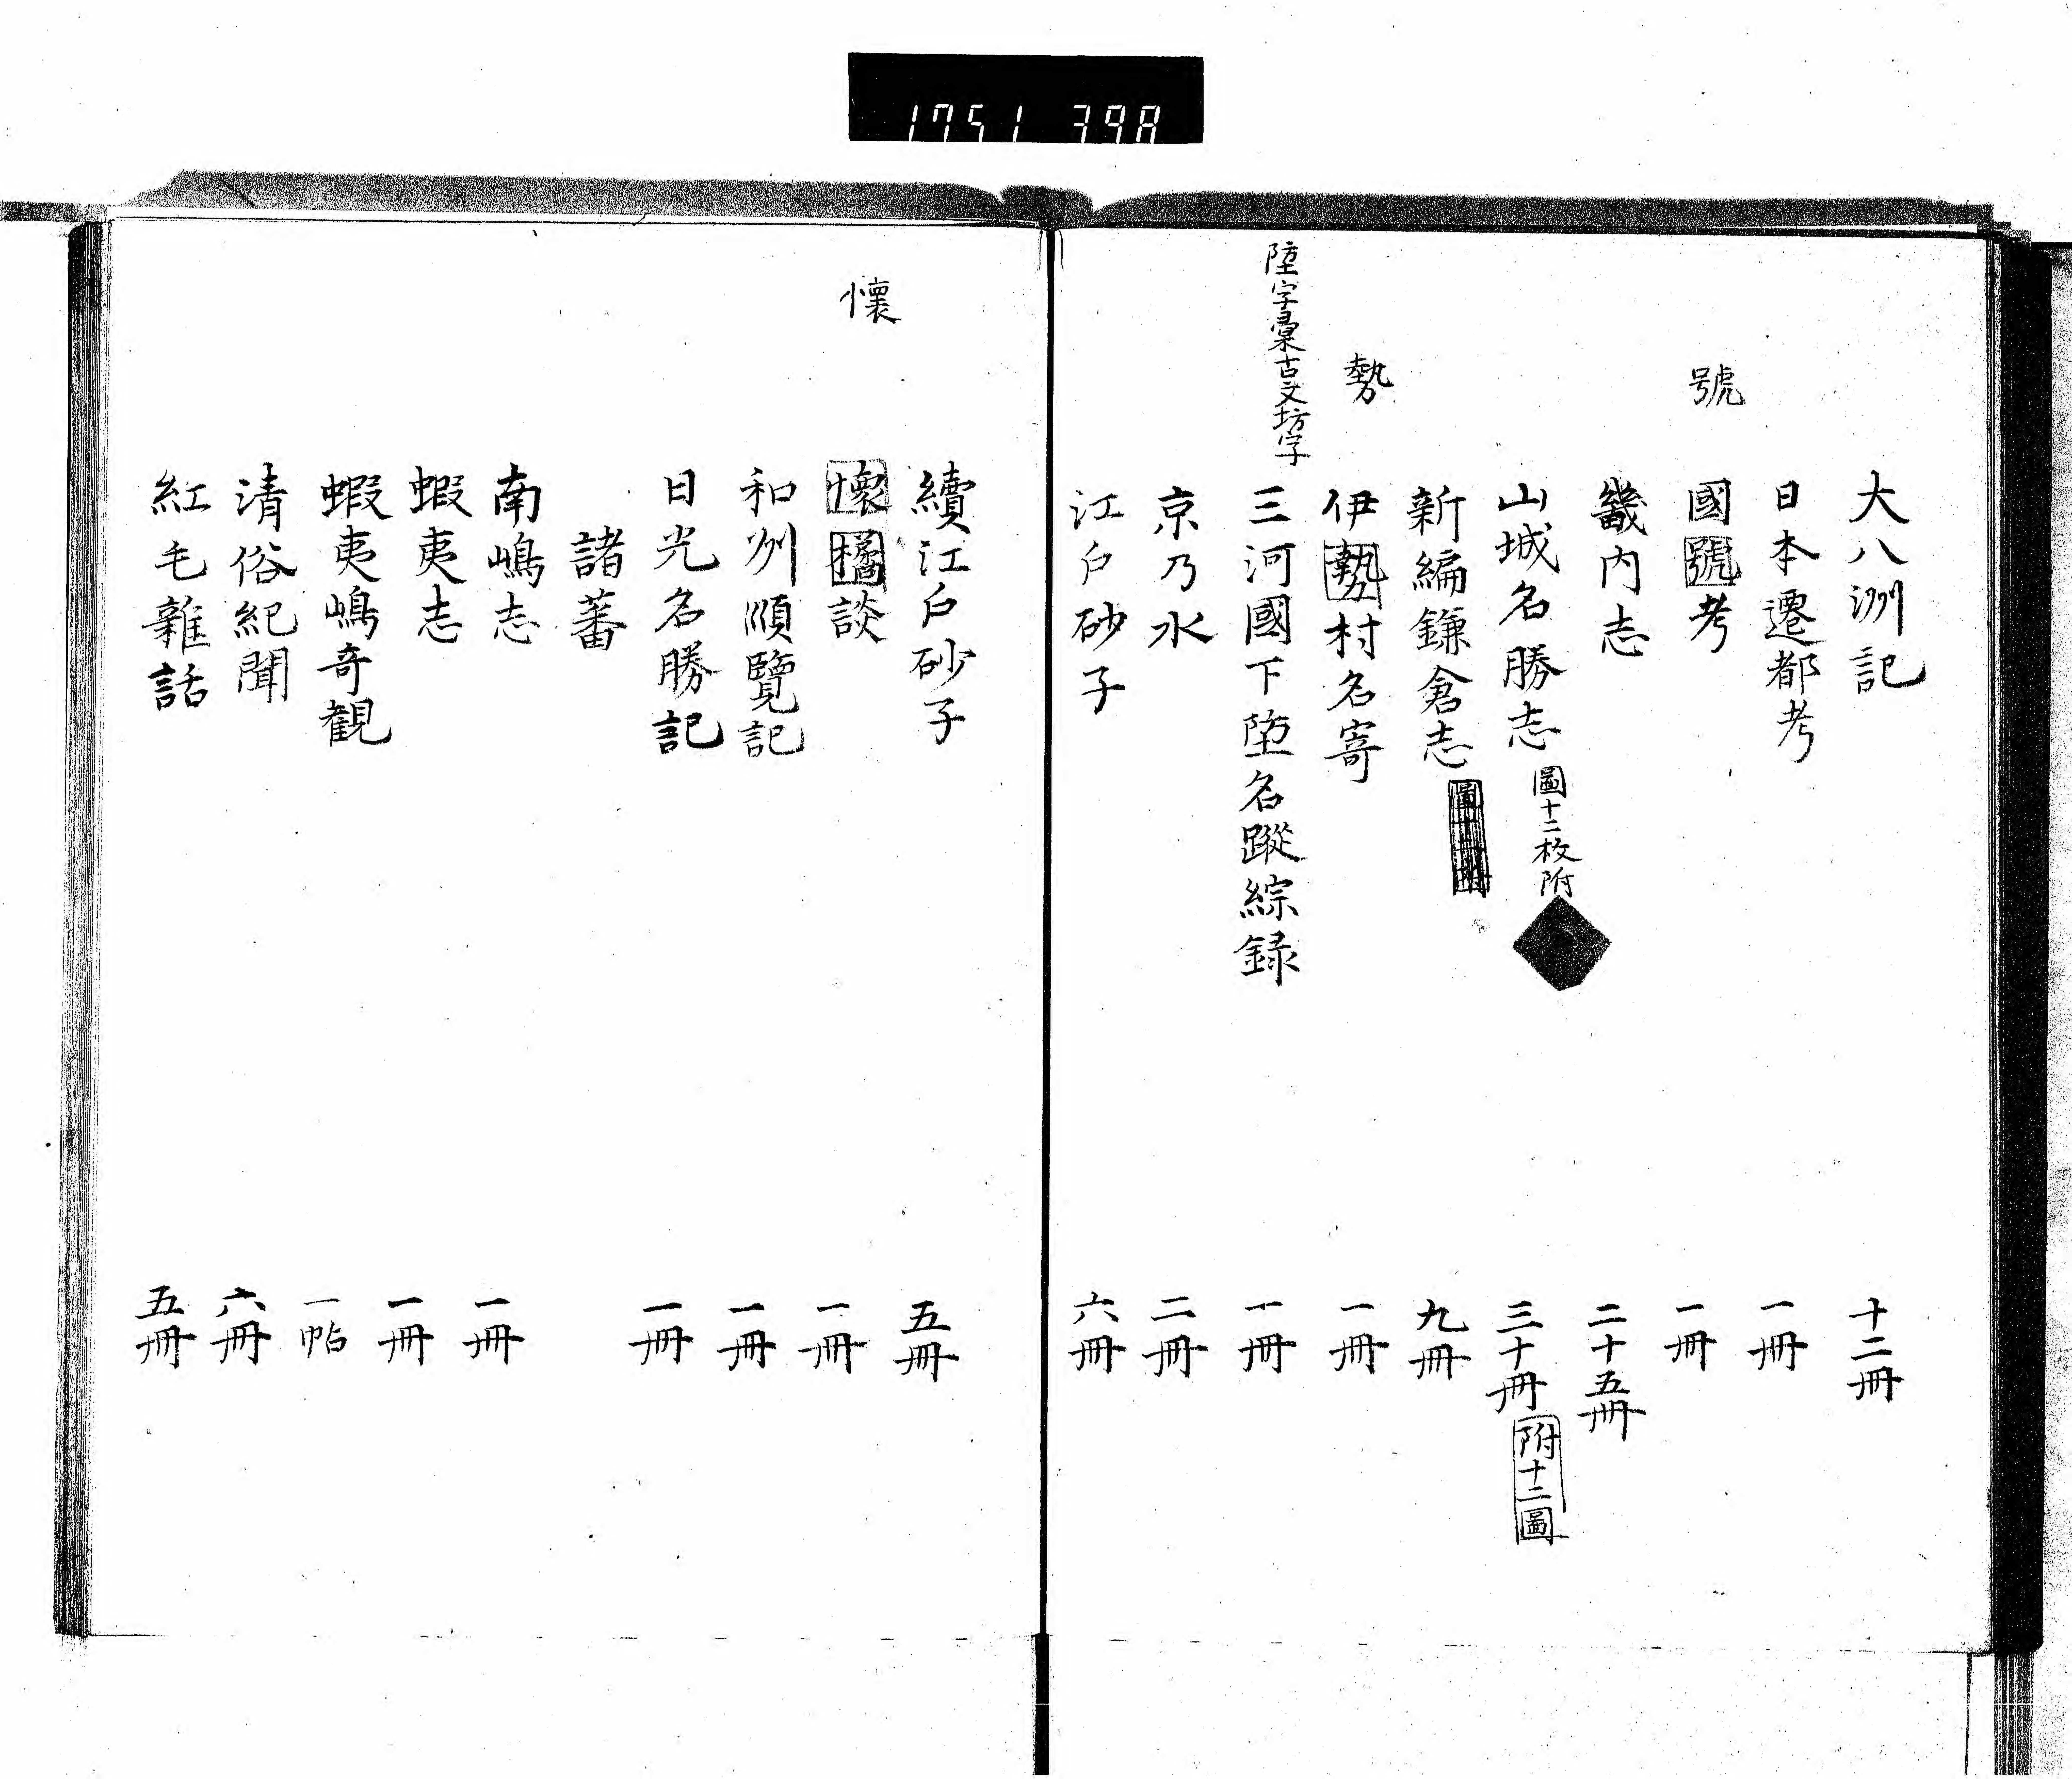 1751 398
大八洲記 十二冊
日本遷都考 一冊
號
國號考 一冊
畿内志 二十五冊
山城名勝志 圖十二枚附 三十冊 附十二圖
新編鎌倉志 九冊
勢
伊勢村名寄 一冊
堕字彙古文坊字
三河國下堕名蹤綜録 一冊
京乃水 二冊
江戸砂子 六冊
續江戸砂子 五冊
懷
懷橘談 一冊
和州順覽記 一冊
日光名勝記 一冊
諸蕃
南嶋志 一冊
蝦夷志 一冊
蝦夷嶋奇観 一帖
清俗紀聞 六冊
紅毛雜話 五冊